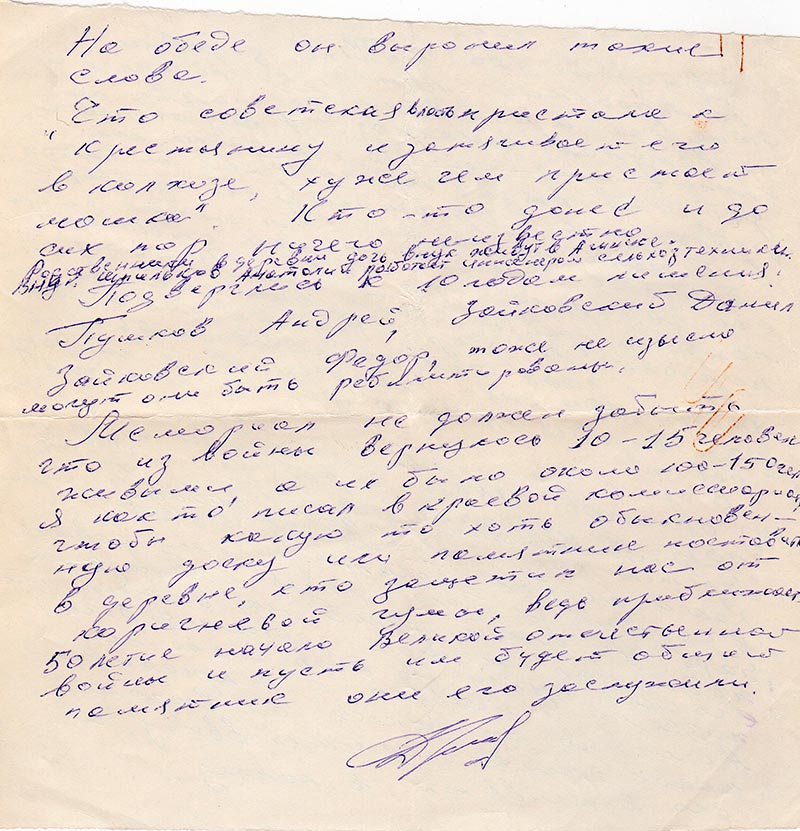 На обеде он выронил такие
слова.
„Что советская власть пристала к
крестьянину и затягивает его
в колхозе, хуже чем пристает
мошка". Кто-то донес и до
сих пор ничего неизвестно
Родственники в деревни дочь внук живут в Ачинске.
Внук Анатолий работает инженером сельхозтехники.
Подверглись к 10 годам лишения:
Пушков Андрей, Зайковский Данил
Зайковский Федор, тоже не изысло
могут они быть реблитированы.
Мемориал не должен забыть
что из войны вернулось 10-15 человек
живыми, а их было около 100-150 чел
я как то, писал в краевой комиссариат
чтобы какую то хоть обыкновен-
ную доску или памятник поставить
в деревне, кто защетил нас от
коричневой чумы, ведь приближает
50 летие начало Великой отечественной
войны и пусть им будет общий
памятник они его заслужили.